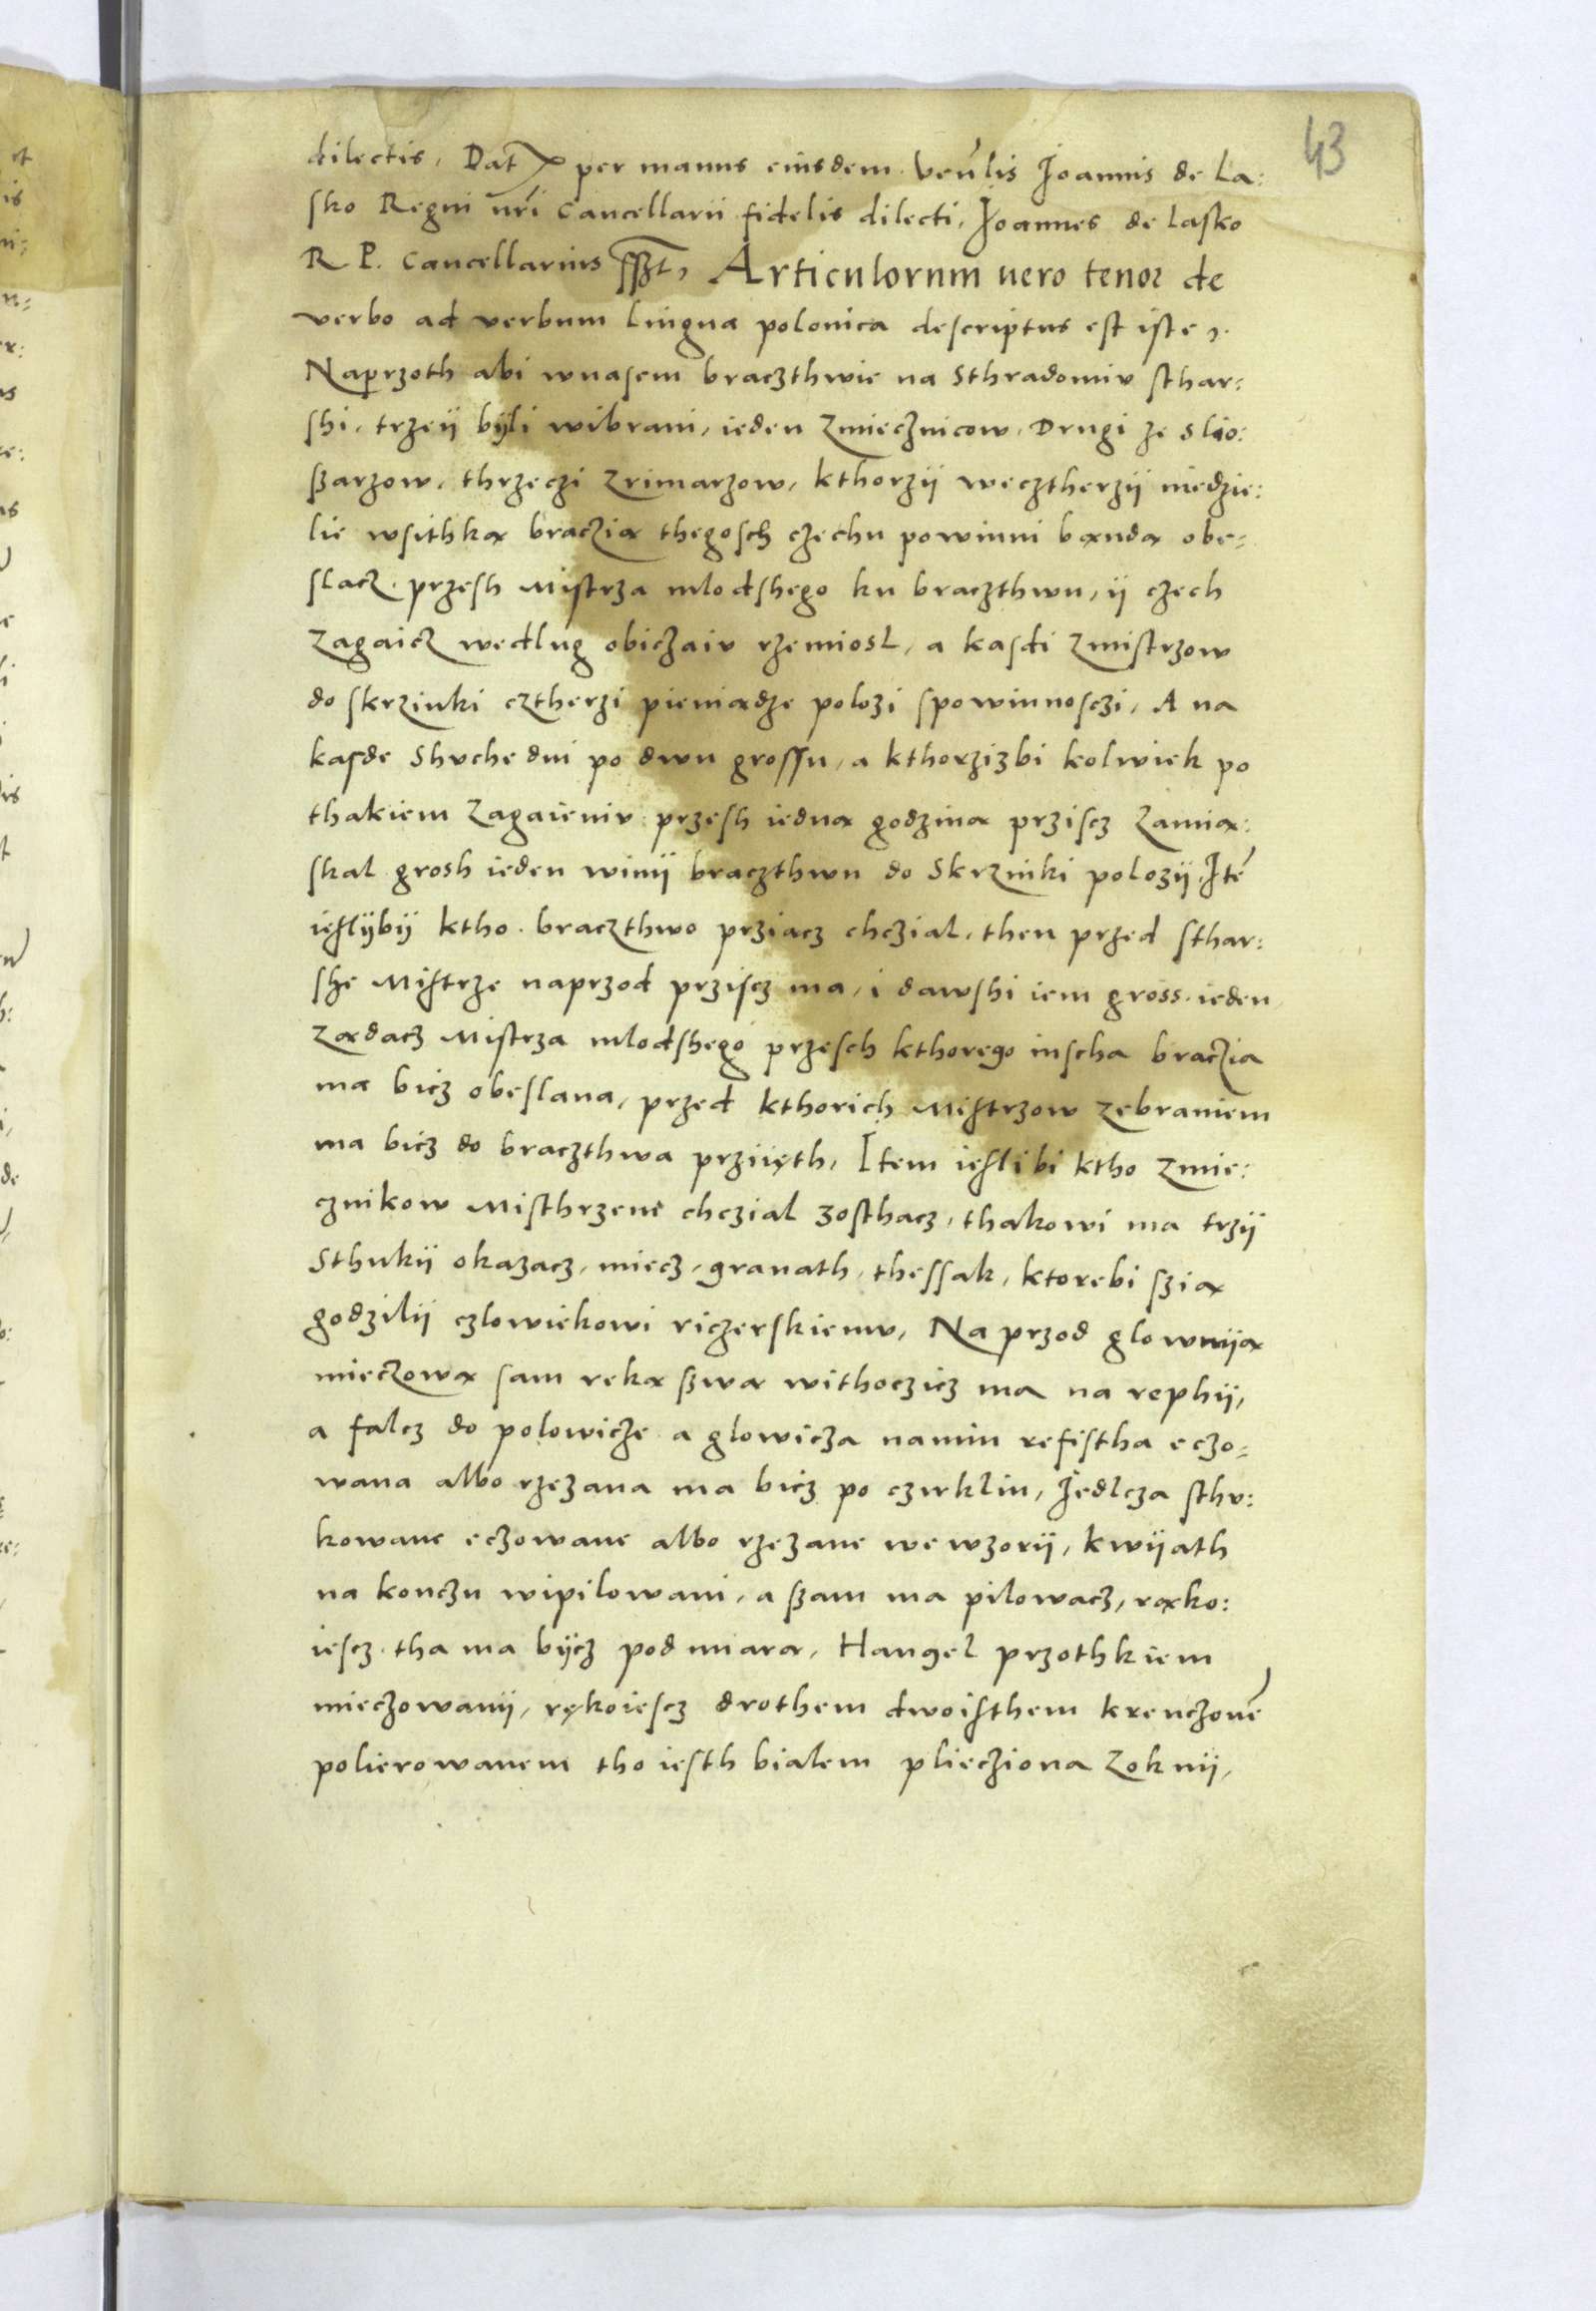 43
dilectis, Dat per manus eiusdem venlis Ioannis de La:
sko Regni nri Cancellarii fidelis dilecti, Ioannes de Lasko
R P. Cancellarius sszt, Articulorum vero tenor de
verbo ad verbum lingua polonica descriptus est iste,
Naprzoth abi wnasem braczthwie na Sthradomiv sthar:
shi, trzeÿ bÿli wibrani, ieden Zmiecznicow, Drugi ze slio:
szarzow, thrzeczi Zrimarzow, kthorzÿ wecztherzÿ niedzie:
lie wsithką braczią thegosch czechu powinni bąndą obe:
slacz przesh Mistrza mlodshego ku braczthwu, ÿ czech
Zagaicz wedlug obiczaiv rzemiosl, a kasdi Zmistrzow
do skrzinki cztherzi pieniądze polozi spowinnosczi, A na
kasde Shvchedni po dwu grossu, a kthorzizbi kolwiek po
thakiem Zagaieniv przesh iedną godziną przyscz Zamią:
skal grosh ieden winÿ braczthwu do Skrzinki polozÿ. Ite
ieslÿbÿ ktho braczthwo prziacz chczial, then przed sthar:
she Mistrze naprzod prziscz ma, i dawshi iem gross ieden
Ządacz Mistrza mlodshego przesch kthorego inscha braczia
ma bicz obeslana, przed kthorich Mistrzow Zebraniem
ma bicz do braczthwa prziięth, Item ieslibi ktho Zmie:
cznikow Misthrzem chczial zosthacz, thakowi ma trzÿ
Sthukÿ okazacz, miecz, granath, thessak, ktorebi szią
godzilÿ czlowiekowi riczerskiemv, Na przod glownÿą
mieczową sam reką szwą withoczicz ma na rephÿ,
a falcz do polowicze a glowicza namin refistha eczo:
wana albo rzezana ma bicz po czwklin, Jedlcza sthv:
kowane eczowane albo rzezane we wzorÿ, kwÿath
na konczu wipilowani, a szam ma pilowacz, rąko:
iescz tha ma bÿcz pod miarą, Hangel przothkiem
mieczowanÿ, rękoiescz drothem dwoisthem krenczone
polierowanem tho iesth bialem plieczziona Zoknÿ,